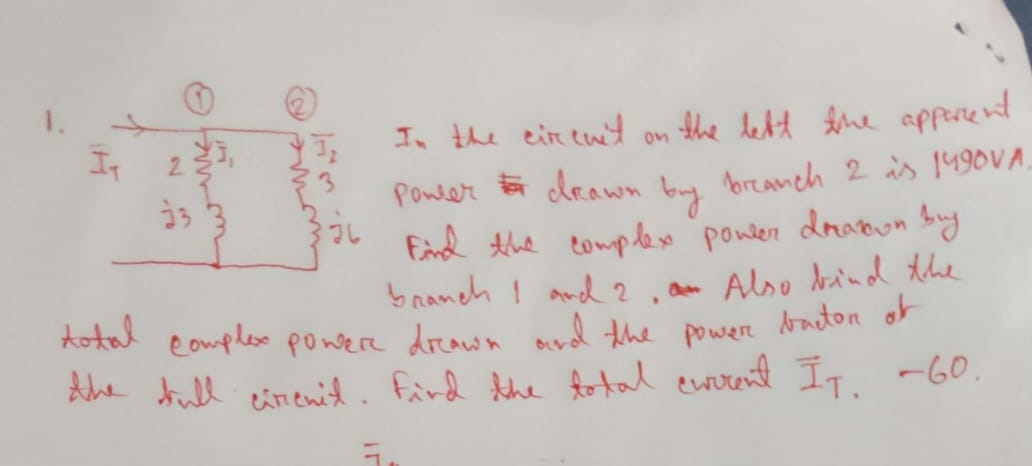 1. ① ②
Ī_T 2 Ī₁ Ī₂ 3 j3 j6
In the circuit on the left the apparent
power drawn by branch 2 is 1490VA.
Find the complex power drawn by
branch 1 and 2. Also find the
total complex power drawn and the power factor of
the full circuit. Find the total current Ī_T. -60.